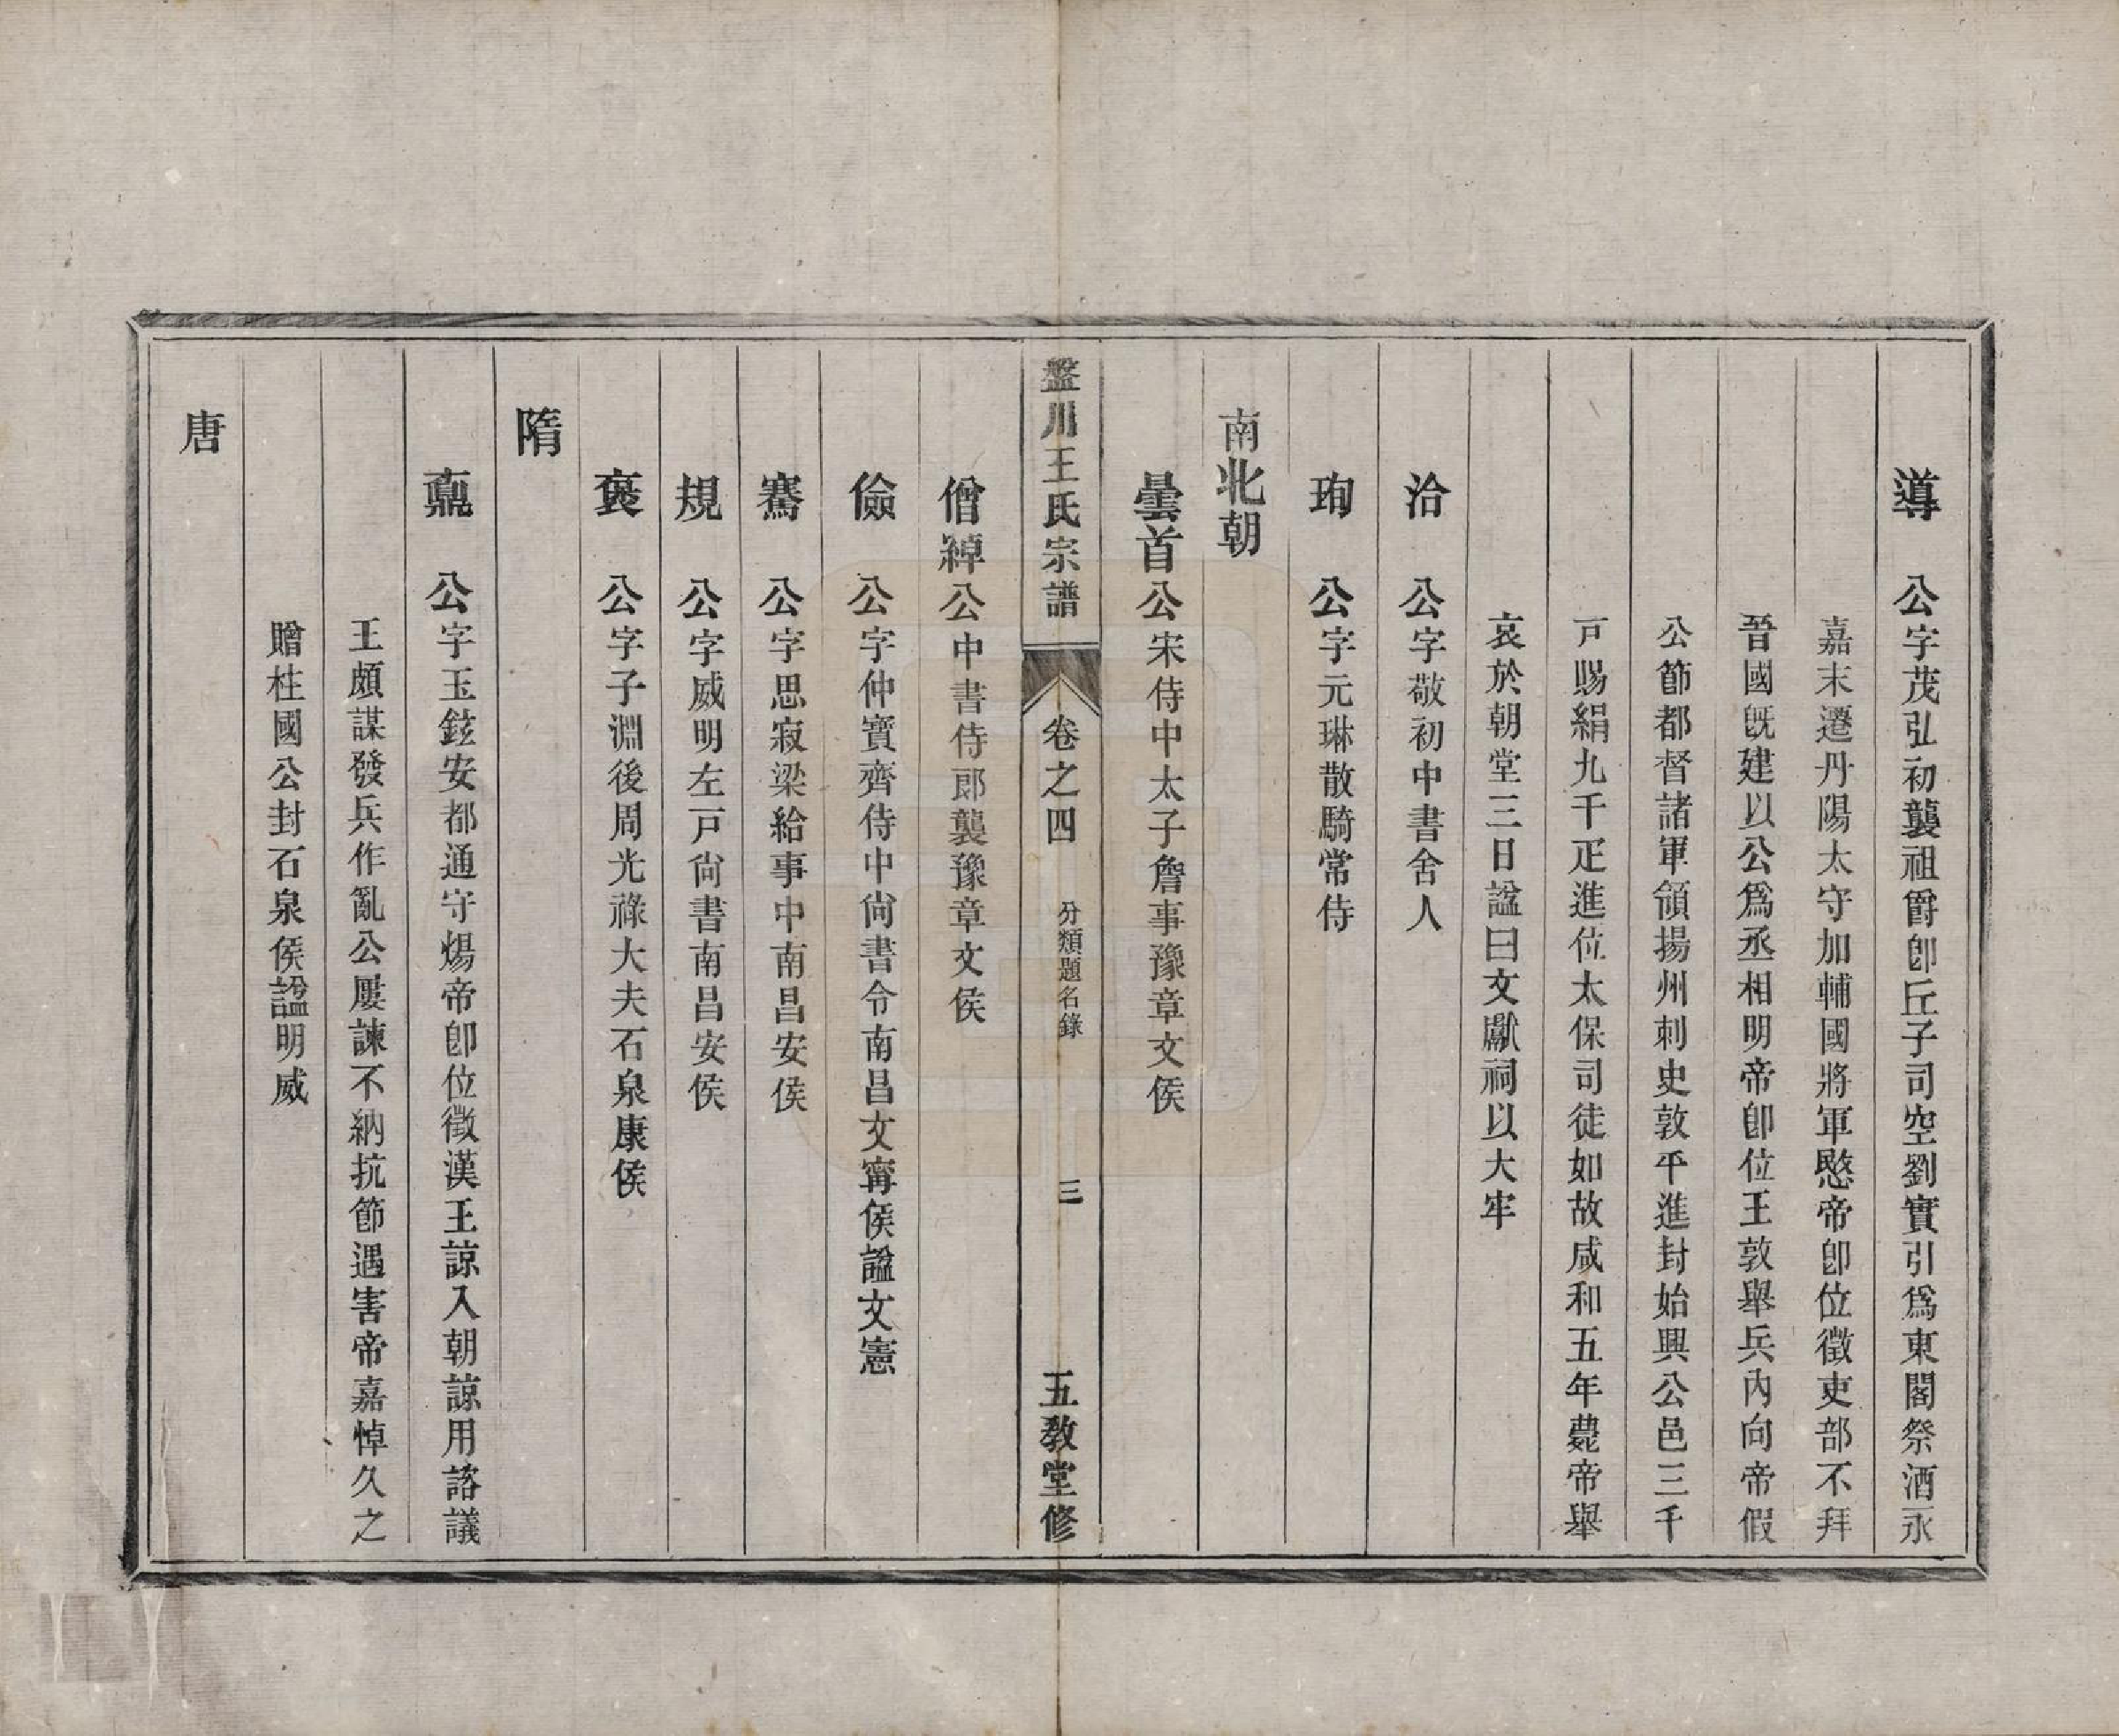 導 公字茂弘初襲祖爵卽丘子司空劉實引爲東閣祭酒永
嘉末遷丹陽太守加輔國將軍愍帝卽位徵吏部不拜
晉國旣建以公爲丞相明帝卽位王敦舉兵內向帝假
公節都督諸軍領揚州刺史敦平進封始興公邑三千
戸賜絹九千疋進位太保司徒如故咸和五年薨帝舉
哀於朝堂三日諡曰文獻祠以大牢
洽 公字敬初中書舍人
珣 公字元琳散騎常侍
南北朝
曇首公宋侍中太子詹事豫章文侯
盤川王氏宗譜 卷之四 分類題名錄 三 五教堂修
僧綽公中書侍郎襲豫章文侯
儉 公字仲寶齊侍中尙書令南昌文寗侯諡文憲
騫 公字思寂梁給事中南昌安侯
規 公字威明左戸尙書南昌安侯
襃 公字子淵後周光祿大夫石泉康侯
隋
鼒 公字玉鉉安都通守煬帝卽位徵漢王諒入朝諒用諮議
王頗謀發兵作亂公屢諫不納抗節遇害帝嘉悼久之
贈柱國公封石泉侯諡明威
唐